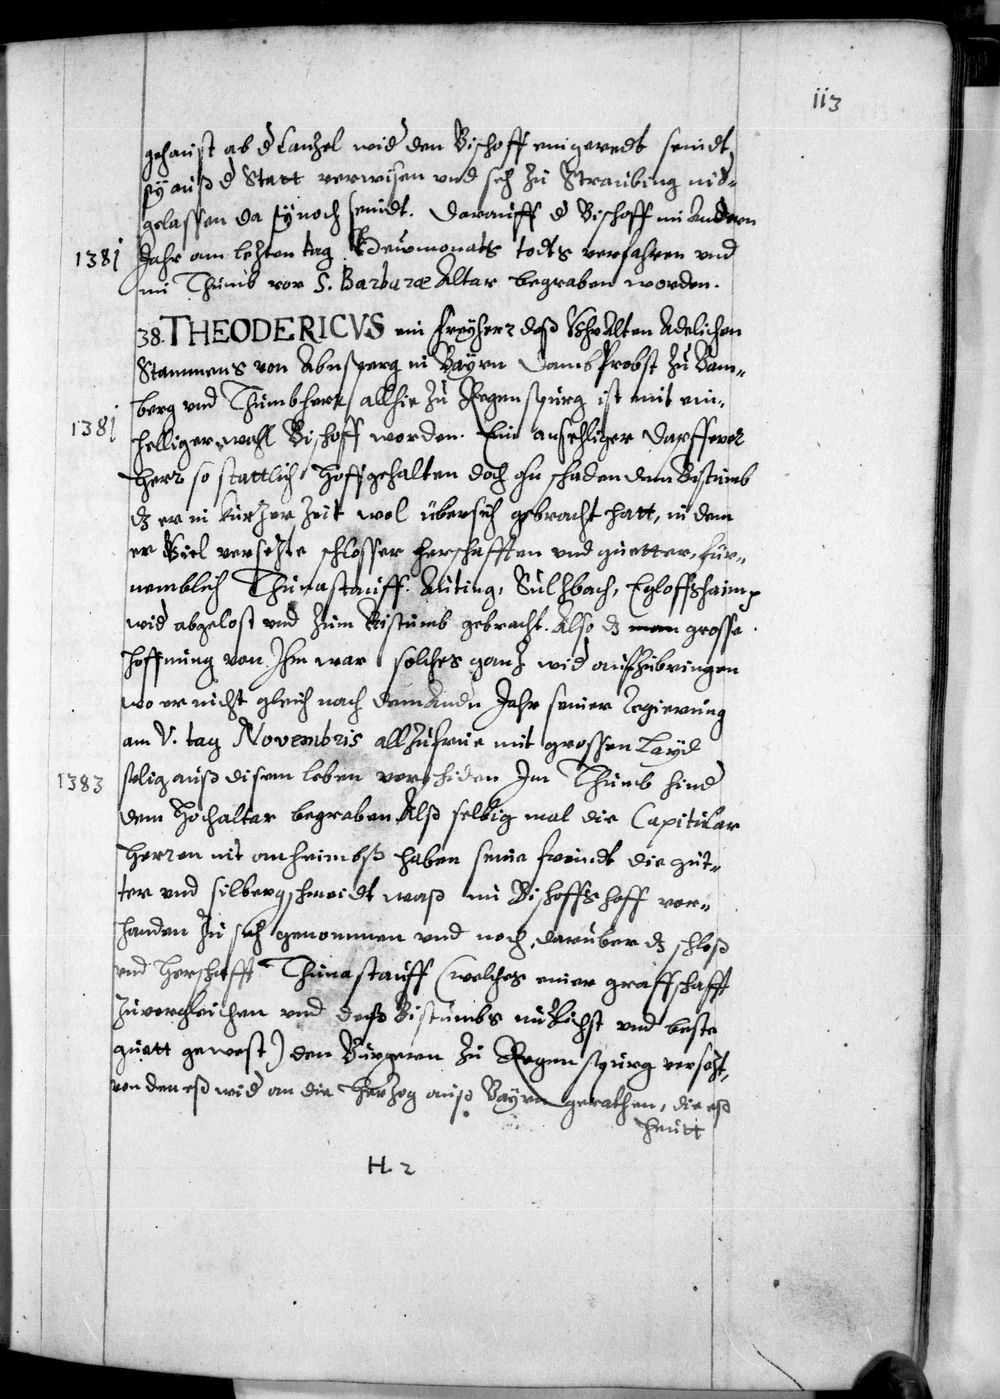 113
gehaust ab d Canzel wid den Bischoff eingeredt seindt
sÿ auß d Statt verwisen und sich zu Straubing nid-
gelassen da sÿ noch seindt. Darauff d Bischoff im Andern
1381 Jahr am lezten tag Heuwmonatts todts verfahren und
im Thumb vor S. Barbaræ Altar begraben worden.
38. THEODERICVS ein freyherr deß Uhralten Adelichen
Stammens von Abensperg in Bayrn Dombprobst zu Bam-
berg und Thumbherr allhie zu Regenspurg ist mit ein-
1381 helliger wahl Bischoff worden. Ein ansehliger
herr so stattlich hoffgehalten doch ohn schaden dem Bistumb
dz er in kurzer Zeit wol übersich gebracht hatt, in dem
er Viel versezte schlosser herschafften und guetter, für-
nemblich Thunastauff. Aiting, Sulzbach, Egloffshaim
wid abgelost und zum Bistumb gebracht. Also dz man grosse
hoffnung von Ihm war solches ganz wid aufzubringen
wo er nicht gleich nach dem Andn Jahr seiner Regierung
am V. tag Novembris allzufrue mit grossen Layd
1383 selig auß disem leben verschiden Im Thumb hind
dem Hochaltar begraben Alß selbig mal die Capitular
herren nit anheimbß haben seine freindt die güt-
ter und silbergschmeidt waß im Bischoffshoff vor-
handen zu sich genommen und noch darüber dz schloß
und herschafft Thunastauff (welches einer graffschafft
zuvergleichen und deß Bistumbs nuzlichst und beste
guett gewest) den Burgern zu Regenspurg versezt,
von den eß wid an die Herzog auß Bayrn gerathen, die eß
heutt
H. 2